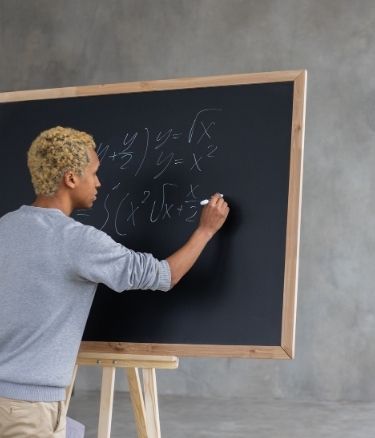 y+y/2) y=√x
y=x²
=∫(x²√x+x/2